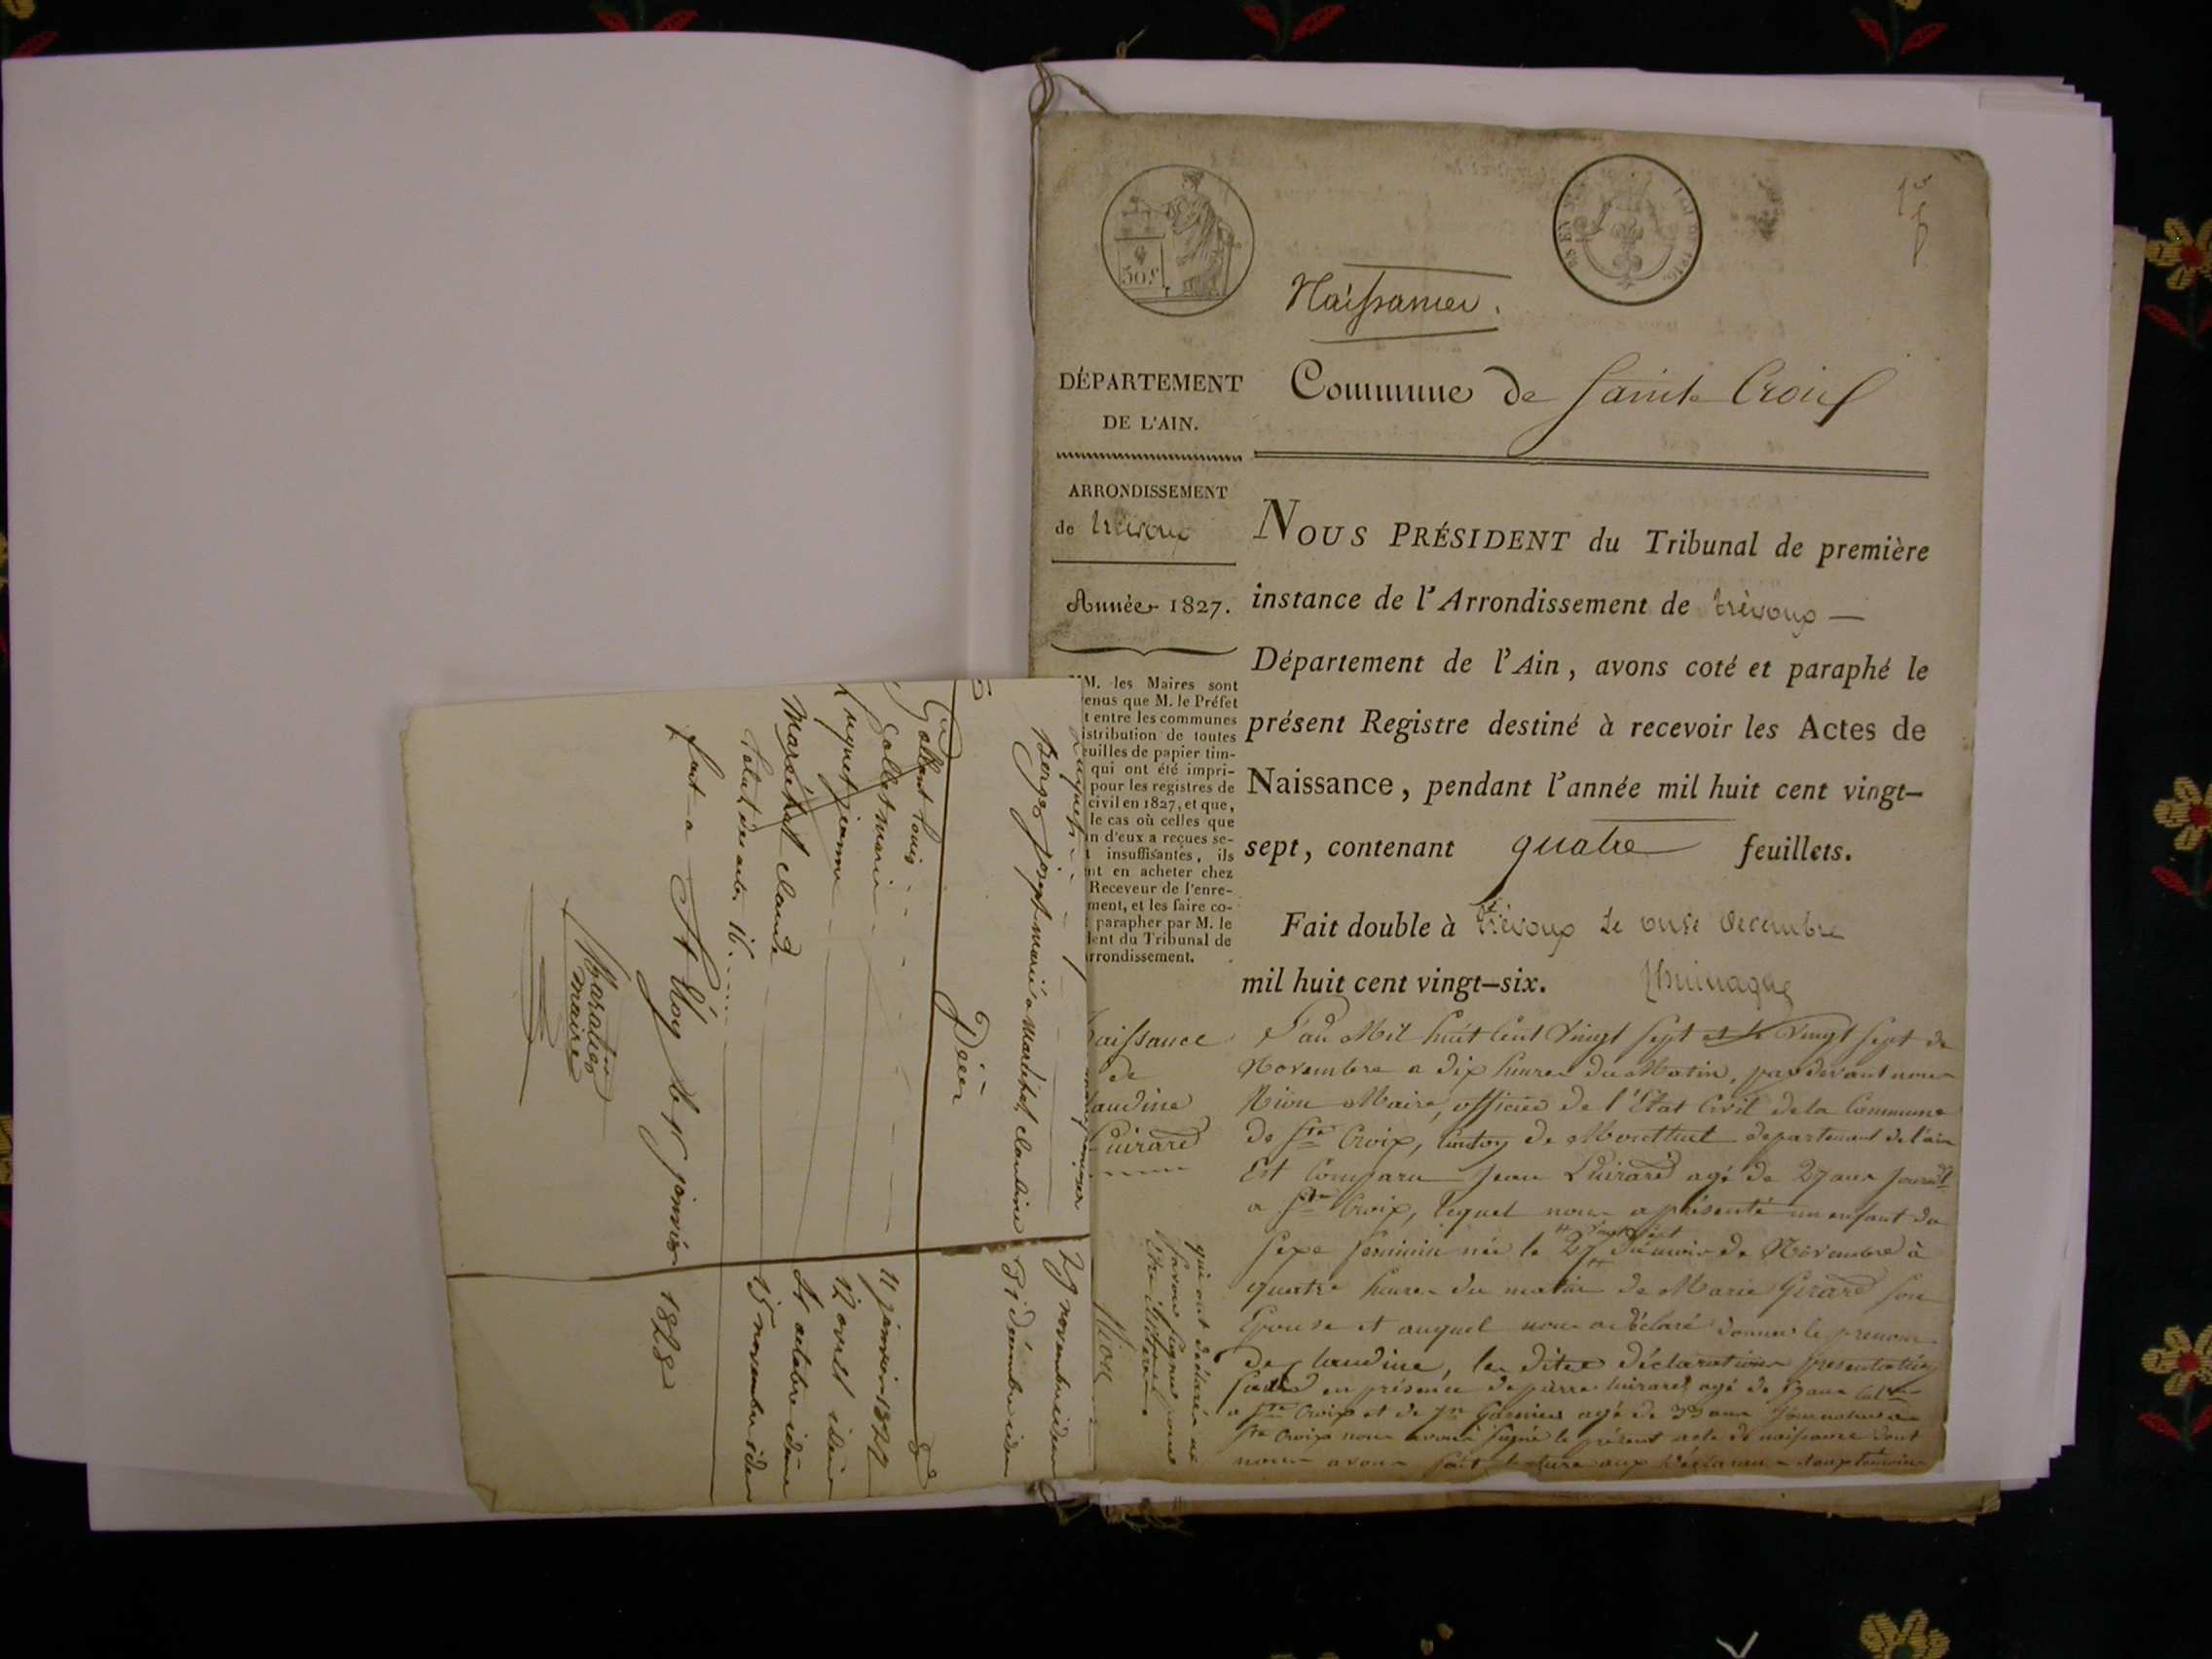 Naissances.
50 c
DÉPARTEMENT
DE L'AIN.
Commune de Sainte Croix
ARRONDISSEMENT
de trévoux
Année 1827.
MM. les Maires sont
enus que M. le Préfet
t entre les communes
istribution de toutes
euilles de papier tim-
qui ont été impri-
pour les registres de
civil en 1827, et que,
le cas où celles que
n d'eux a reçues se-
t insuffisantes, ils
nt en acheter chez
Receveur de l'enre-
ment, et les faire co-
parapher par M. le
dent du Tribunal de
rrondissement.
NOUS PRÉSIDENT du Tribunal de première
instance de l'Arrondissement de trévoux —
Département de l'Ain, avons coté et paraphé le
présent Registre destiné à recevoir les Actes de
Naissance, pendant l'année mil huit cent vingt-
sept, contenant quatre feuillets.
Fait double à trévoux le onze decembre
mil huit cent vingt-six.
aissance
de
laudine
Luirard
L'an Mil huit Cent Vingt sept et le Vingt sept de
Novembre a dix heures du Matin, pardevant nous
Niou Maire, officier de l'Etat Civil de la Commune
de Ste Croix, Canton de Montluel departement de l'ain
Est Comparu Jean Luirard agé de 27 ans
a Ste Croix, lequel nous a présenté un enfant du
sexe feminin née le 27 vingt sept du mois de Novembre à
quatre heures du matin de Marie Girard son
Epouse et auquel nous a déclaré donner le prenom
de Claudine, les dites déclaration presentation
faites en présence de pierre Luirard agé de ans
a Ste Croix et de Garnier agé de 33 ans
Ste Croix nous avons signé le présent acte de naissance dont
nous avons fait lecture aux temoins
qui ont déclaré ne
savoir signer
Niou
Luquet
Berger josept marié a Maréchal claudine 31 Décembre idem
29 novembre idem
Décès
Galland Louis 11 janvier 1827
Collet marie 12 avril idem
Luquet jeanne octobre idem
Maréchal claude 15 novembre idem
Total des actes 16
fait a St Eloy le janvier 1828
maire